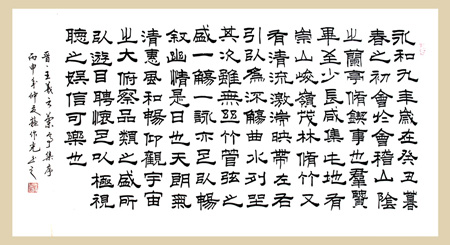 永和九年歲在癸丑暮
春之初會於會稽山陰
之蘭亭脩禊事也羣賢
畢至少長咸集此地有
崇山峻嶺茂林脩竹又
有清流激湍映帶左右
引以為流觴曲水列坐
其次雖無絲竹管弦之
盛一觴一詠亦足以暢
敘幽情是日也天朗氣
清惠風和暢仰觀宇宙
之大俯察品類之盛所
以遊目騁懷足以極視
聽之娛信可樂也
晉·王羲之蘭亭集序
丙申年仲夏